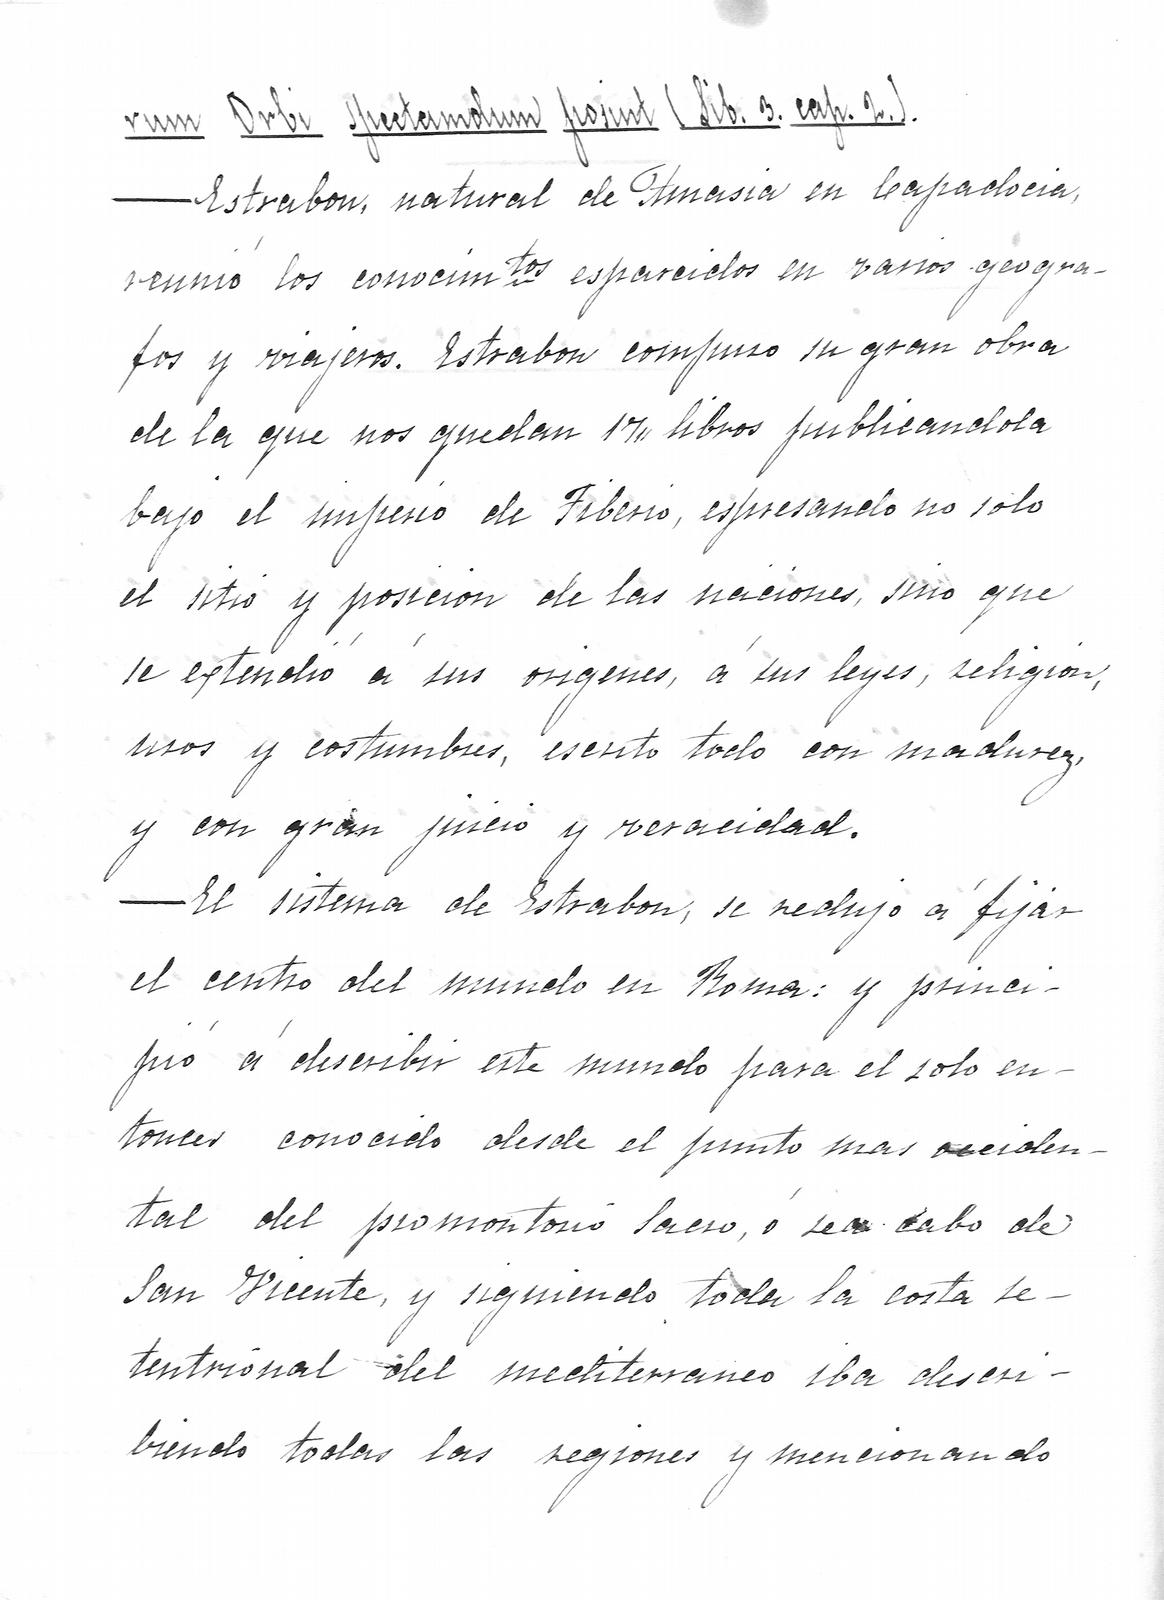 rum Orbi spectamdum posint (Lib. 3. cap. 2.).
—Estrabon, natural de Amasia en Capadocia,
reunió los conocimtos esparcidos en varios geogra-
fos y viajeros. Estrabon compuso su gran obra
de la que nos quedan 17,, libros publicandola
bajo el imperio de Tiberio, espresando no solo
el sitio y posicion de las naciones, sino que
se extendió á sus origenes, á sus leyes, religion,
usos y costumbres, escrito todo con madurez,
y con gran juicio y veracidad.
—El sistema de Estrabon, se redujo á fijar
el centro del mundo en Roma: y princi-
pió á describir este mundo para el solo en-
tonces conocido desde el punto mas occiden-
tal del promontorio Sacro, ó sea cabo de
San Vicente, y siguiendo toda la costa se-
tentrional del mediterraneo iba descri-
biendo todas las regiones y mencionando